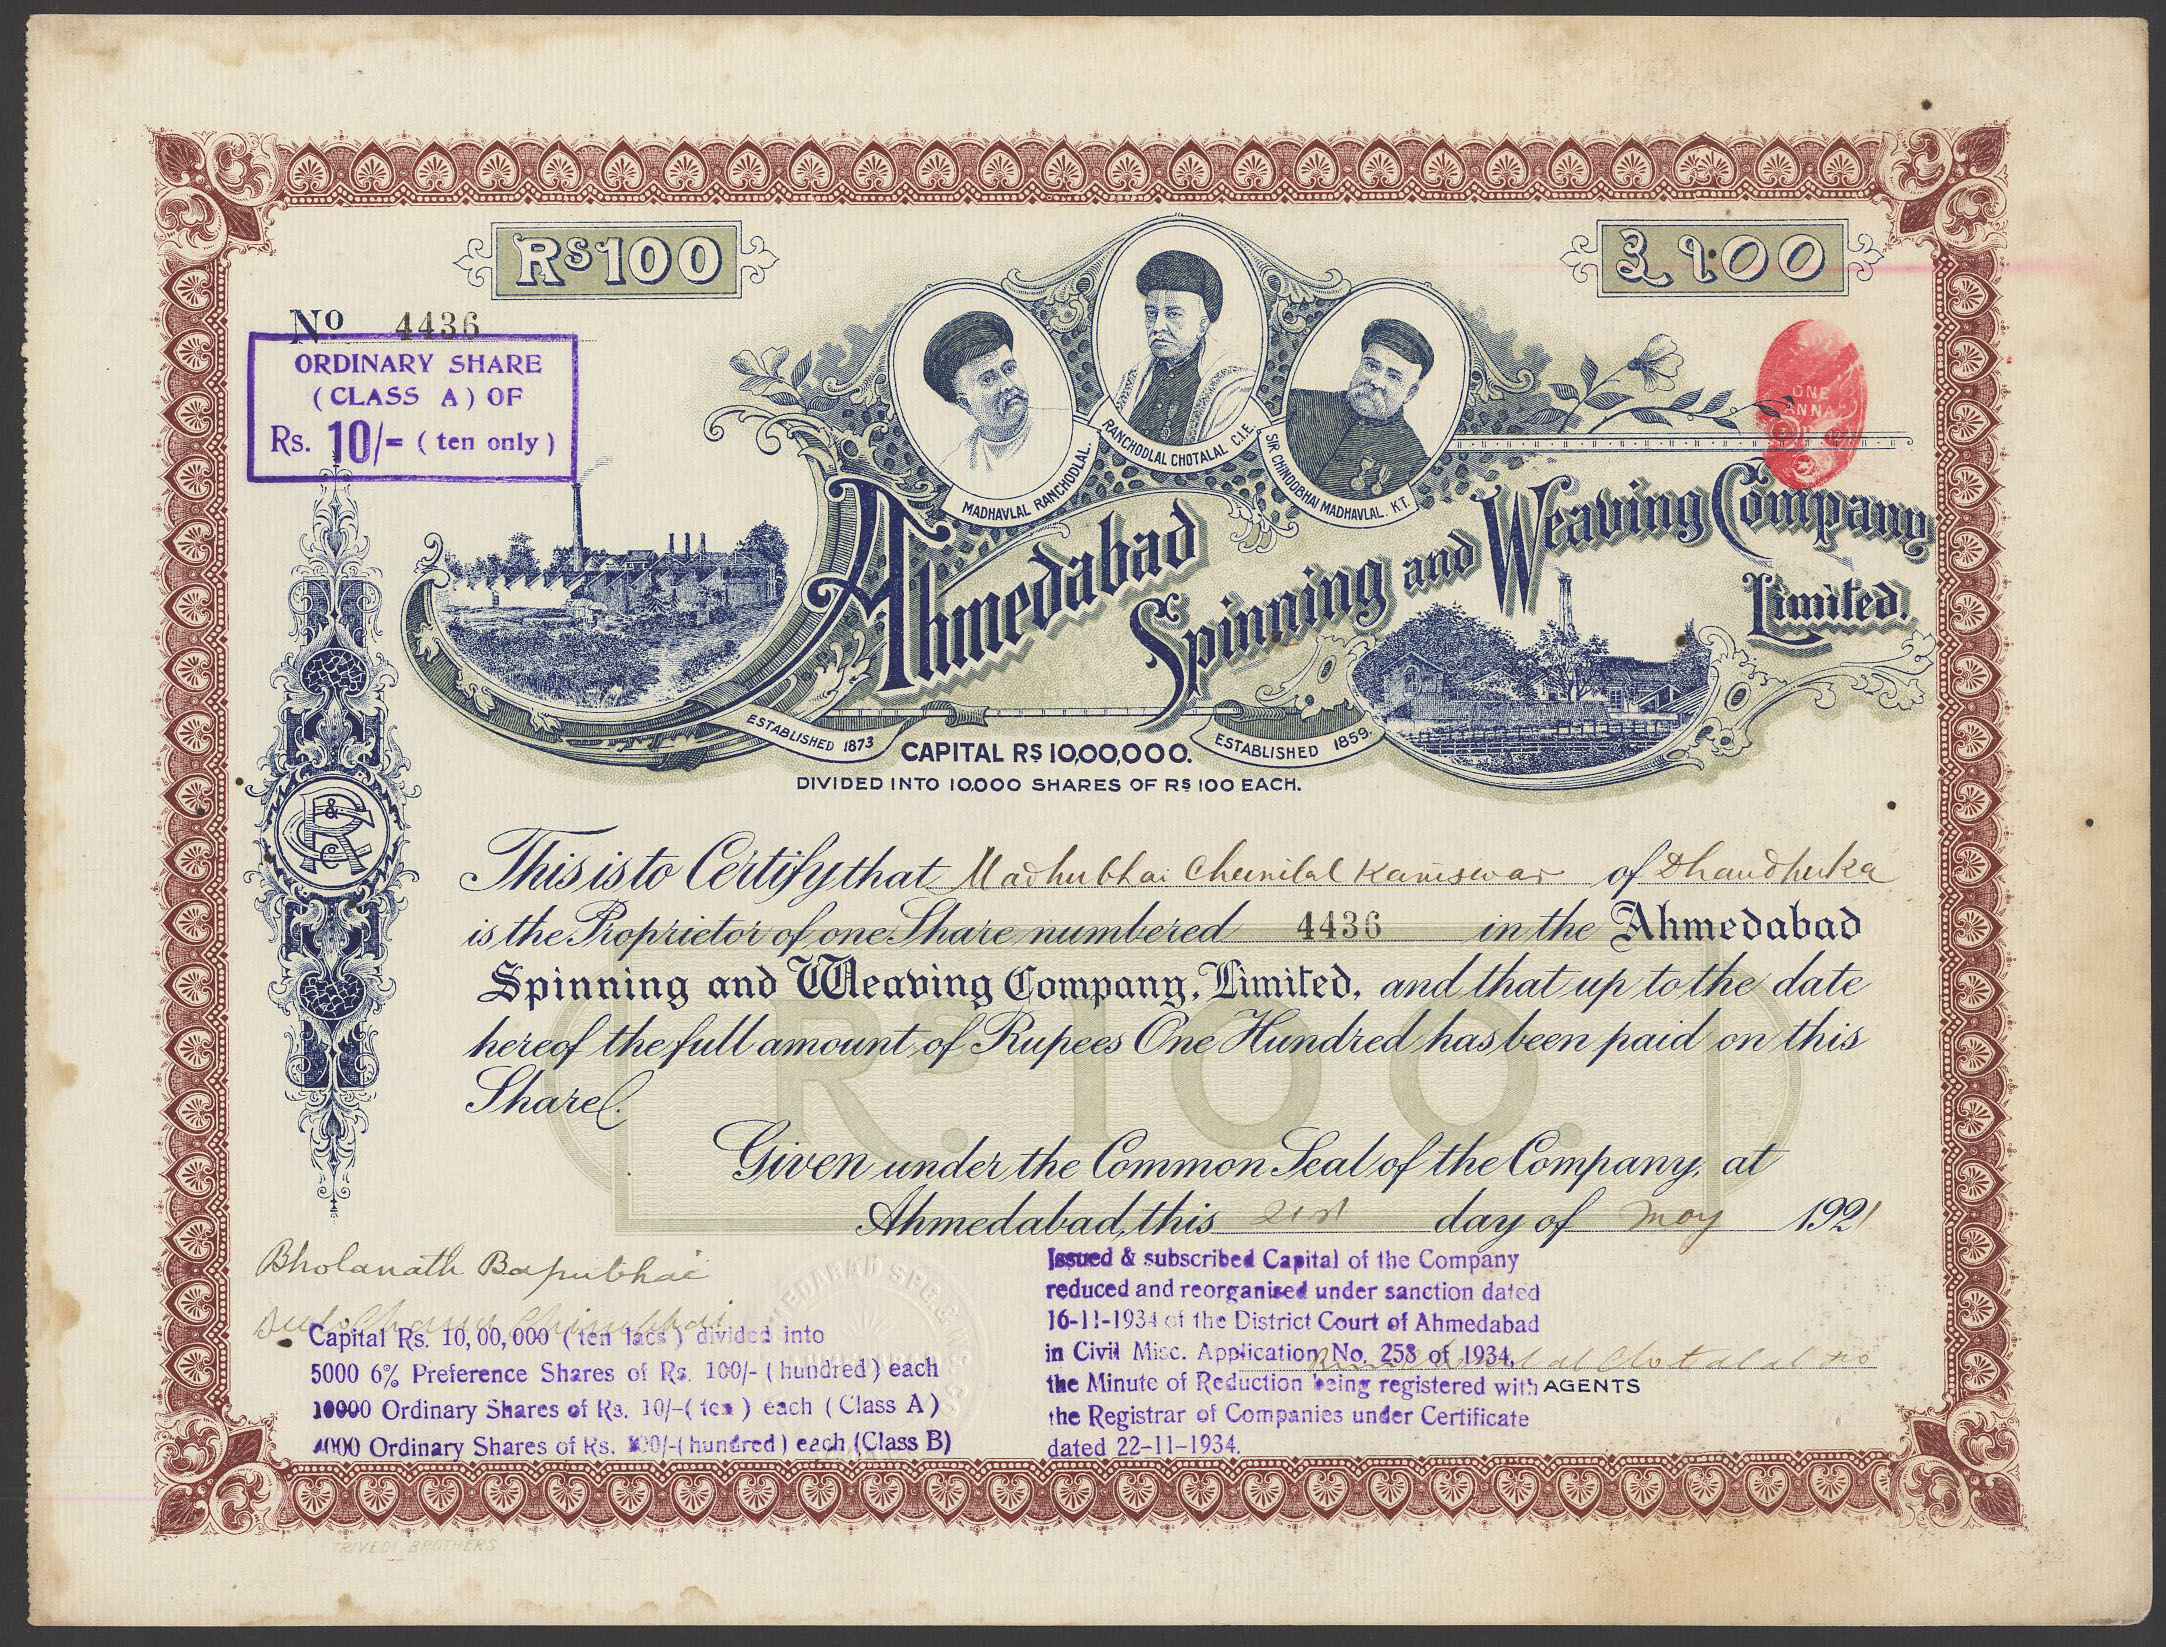 Rs 100
રૂ ૧૦૦
No 4436
ORDINARY SHARE
(CLASS A) OF
Rs. 10/= (ten only)
MADHAVLAL RANCHODLAL.
RANCHODLAL CHOTALAL C.I.E.
SIR CHINOOBHAI MADHAVLAL. K.T.
ONE
ANNA
Ahmedabad
Spinning and Weaving Company
Limited.
ESTABLISHED 1873
ESTABLISHED 1859.
CAPITAL RS 10,00,000.
DIVIDED INTO 10,000 SHARES OF RS 100 EACH.
This is to Certify that Madhubhai Chunilal of Dhandhuka
is the Proprietor of one Share numbered 4436 in the Ahmedabad
Spinning and Weaving Company, Limited, and that up to the date
hereof the full amount of Rupees One Hundred has been paid on this
Share.
RS. 100.
Given under the Common Seal of the Company, at
Ahmedabad, this 21st day of May 1921
Bholanath Bapubhai
Capital Rs. 10,00,000 (ten lacs) divided into
5000 6% Preference Shares of Rs. 100/- (hundred) each
10000 Ordinary Shares of Rs. 10/-(ten) each (Class A)
4000 Ordinary Shares of Rs. 100/-(hundred) each (Class B)
Issued & subscribed Capital of the Company
reduced and reorganised under sanction dated
16-11-1934 of the District Court of Ahmedabad
in Civil Misc. Application No. 258 of 1934,
the Minute of Reduction being registered with
the Registrar of Companies under Certificate
dated 22-11-1934.
AGENTS
TRIVEDI BROTHERS